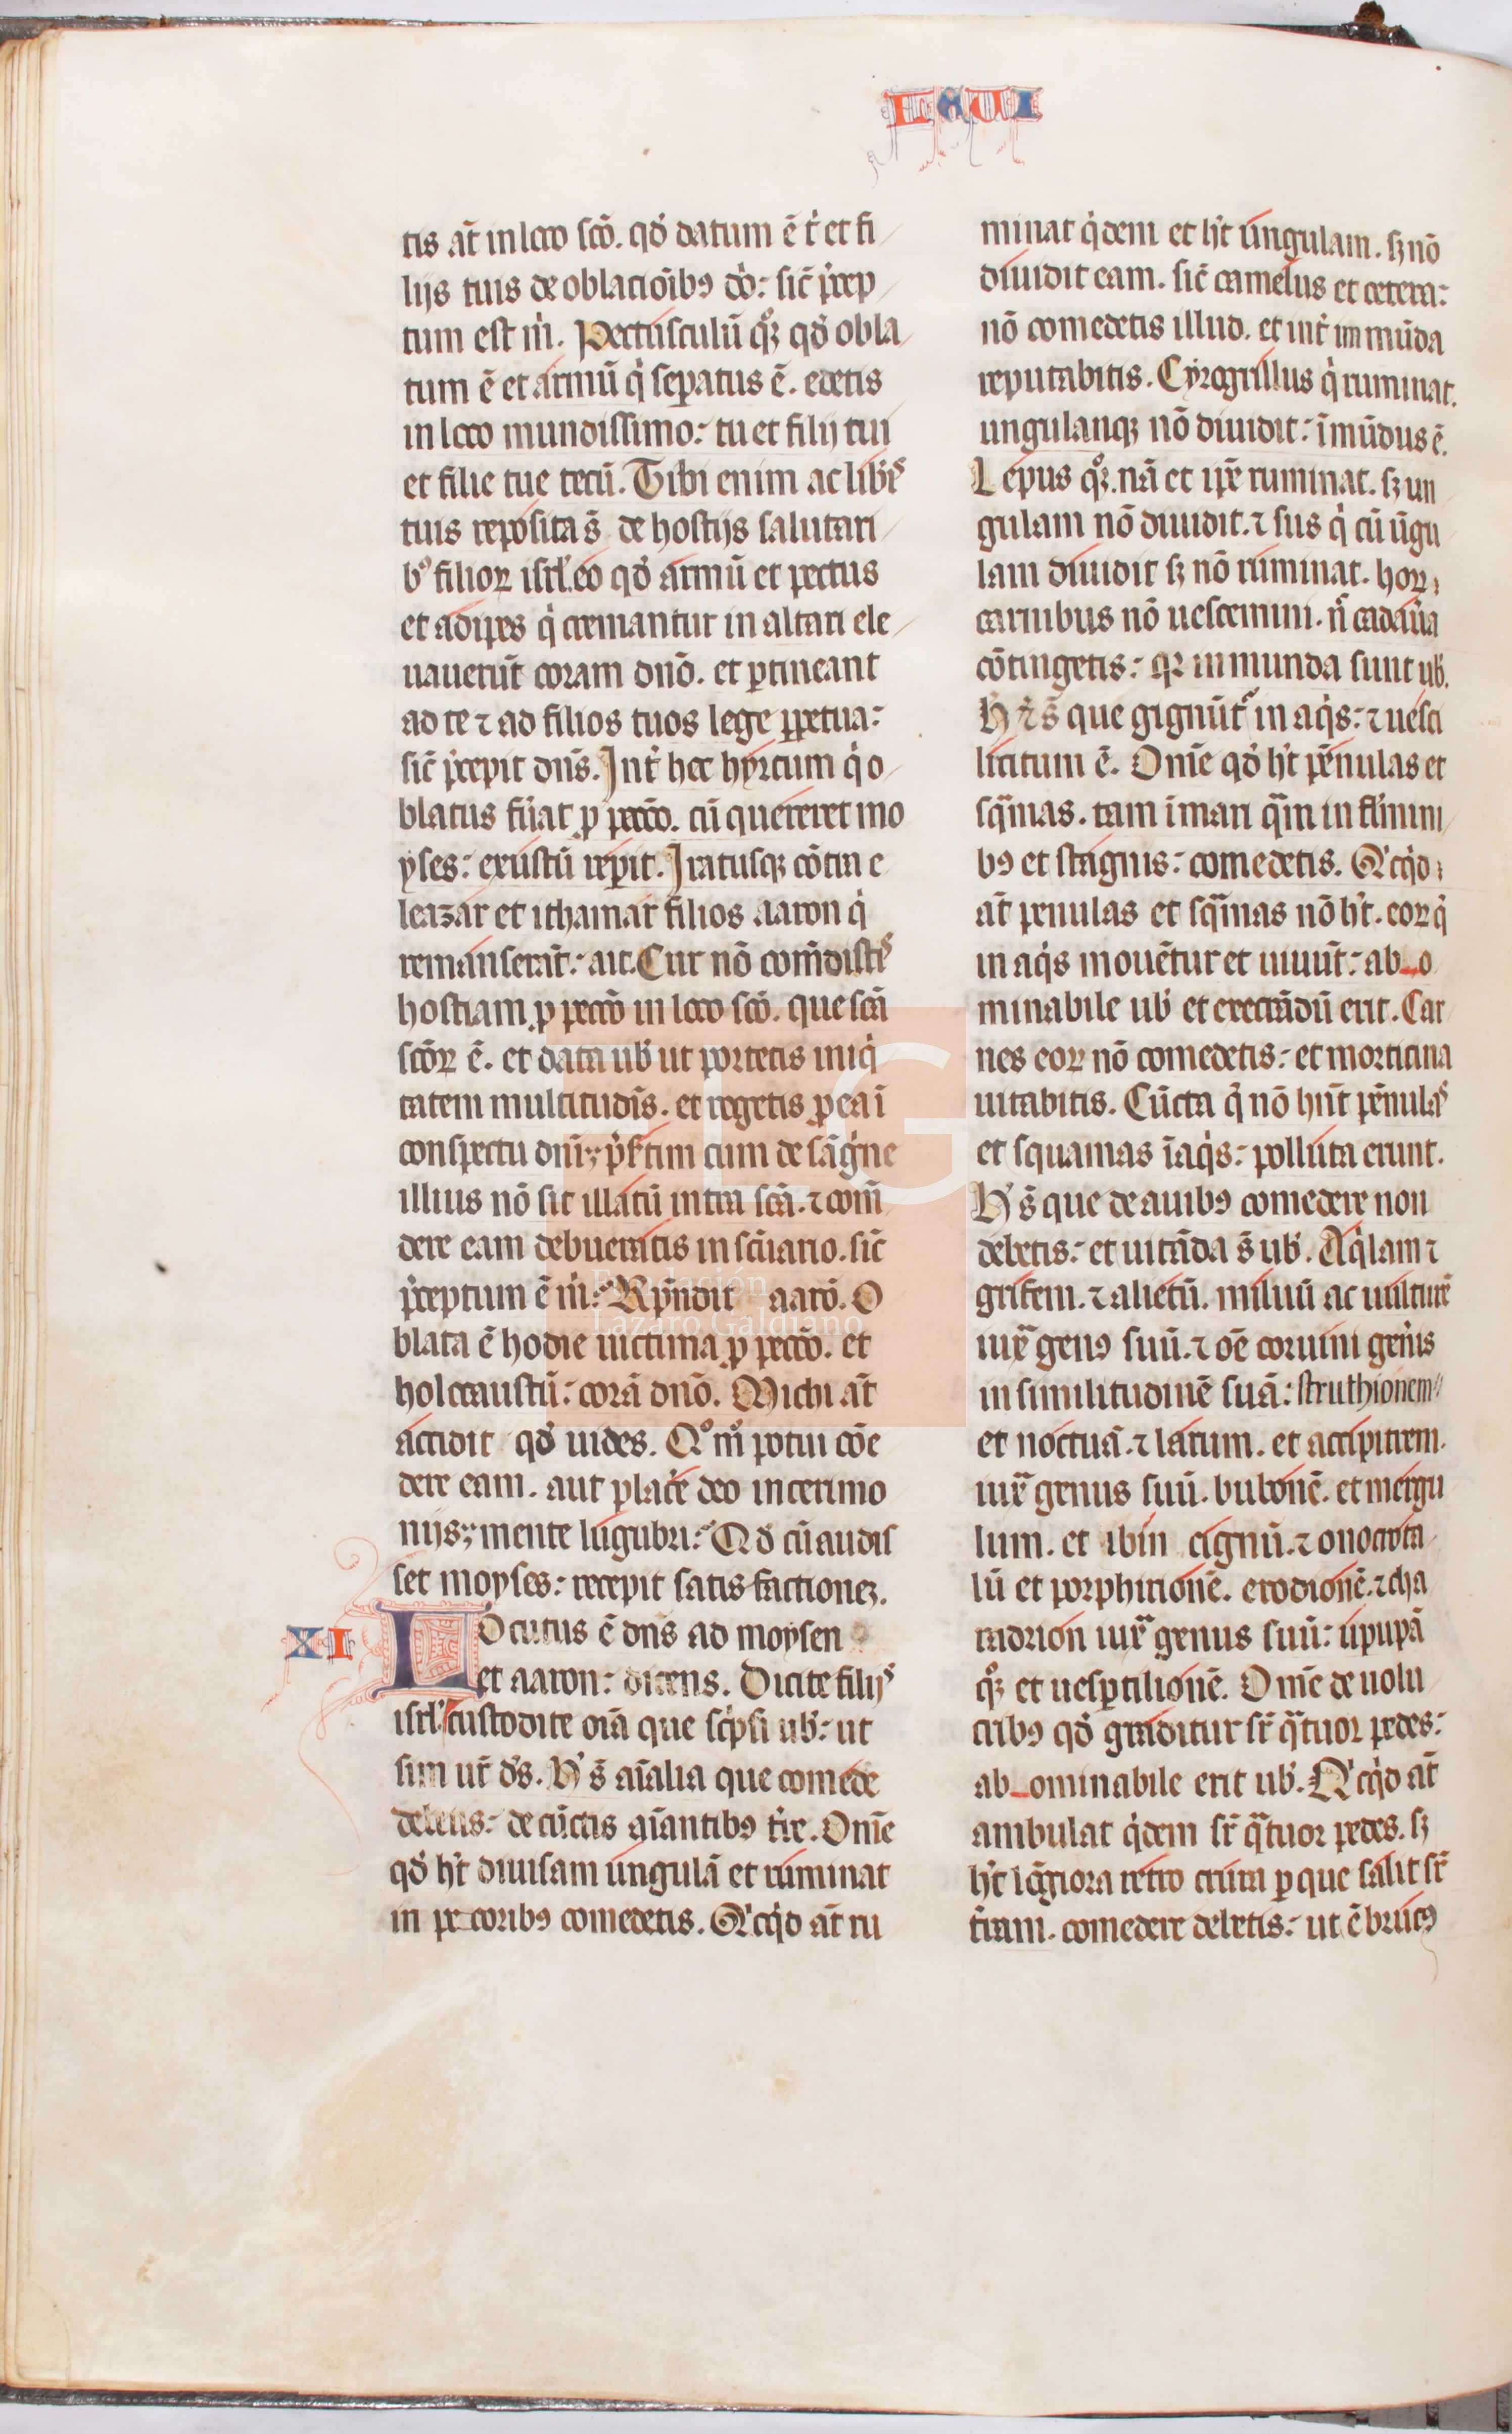 LEVI
tis at̄ in loco sc̄o. qd̓ datum ē t̓ et fi
lijs tuis de oblacioībꝯ dn̓i: sic̄ p̓cep
tum est m̓. Pectusculū qꝫ qd̓ obla
tum ē et armū q̓ sepatus ē. edetis
in loco mundissimo: tu et filij tui
et filie tue tecū. Tibi enim ac lib̓is
tuis reposita s̄ de hostijs salutari
bꝰ filioꝝ isrl̓. eo qd̓ armū et pectus
et adipes q̓ cremantur in altari ele
uauerūt coram dn̄o. et ꝑtineant
ad te ⁊ ad filios tuos lege ꝑpetua:
sic̄ p̓cepit dn̄s. Int̓ hec hyrcum q̓ o
blatus fu̓at ꝓ pecc̄o. cū quereret mo
yses: exustū rep̓it. Iratusqꝫ cōtra e
leazar et ithamar filios aaron q̓
remanserāt: ait. Cur nō com̄distis
hostiam ꝓ pecc̄o in loco sc̄o. que sc̄a
sc̄oꝝ ē. et data ub̓ ut portetis iniq̓
tatem multitudīs. et rogetis ꝓ ea ī
conspectu dn̄i; p̓s̓tim cum de sāg̓ne
illius nō sit illatū intra sc̄a. ⁊ com̄
dere eam debueratis in sc̄uario. sic̄
p̓ceptum ē m̓: Rn̄dit aarō. O
blata ē hodie uictima ꝓ pecc̄o. et
holocaustū: corā dn̄o. Michi at̄
accidit qd̓ uides. Qͦmͦ potui cōe
dere eam. aut place̓ deo in cerimo
nijs; mente lugubri: Qd̓ cū audis
set moyses: recepit satisfactionē.
XI
Locutus ē dn̄s ad moysen
et aaron: dicens. Dicite filijs
isrl̓. custodite oīa que sc̓psi ub̓: ut
sim ur̄ ds̓. H̓ s̄ aīalia que comede
debetis: de cūctis aīantibꝯ t̓re. Om̄e
qd̓ h̓t diuisam ungulā et ruminat
in pecoribꝯ comedetis. Qͥcq̓d at̄ ru
minat q̓dem et h̓t ungulam. sꝫ nō
diuidit eam. sic̄ camelus et cetera:
nō comedetis illud. et int̓ immūda
reputabitis. Cyrogrillus q̓ ruminat.
ungulamqꝫ nō diuidit: īmūdus ē.
Lepus qꝫ. nā et ip̄e ruminat. sꝫ un
gulam nō diuidit. ⁊ sus q̓ cū ūgu
lam diuidit sꝫ nō ruminat. hoꝝ
carnibus nō uescemini. n̄ cadau̓a
cōtingetis: qꝛ inmunda sunt ub̓.
H̓ s̄ que gignūt̓ in aq̓s: ⁊ uesci
licitum ē. Om̄e qd̓ h̓t pēnulas et
sq̄mas. tam ī mari q̄m in flūmini
bꝯ et stagnis: comedetis. Qͥcq̓d
at̄ pennulas et sq̄mas nō h̓t. eoꝝ q̓
in aq̓s mouētur et uiuūt: ab_o
minabile ub̓ et execrādū erit. Car
nes eoꝝ nō comedetis: et morticina
uitabitis. Cūcta q̓ nō hn̄t pēnulas
et squamas ī aq̓s: polluta erunt.
H̓ s̄ que de auibꝯ comedere non
debetis: et uitāda s̄ ub̓. Aq̓lam ⁊
grifem. ⁊ alietū. miluū ac uulturē
iux̄ genꝯ suū. ⁊ oē coruini gen̓is
in similitudinē suā: struthionem
et noctuā. ⁊ larum. et accipitrem.
iux̄ genus suū. bubonē. et mergu
lum. et ibin cignū. ⁊ onocrota
lū et porphirionē. erodionē. ⁊ cha
radrion iux̄ genus suū: upupā
qꝫ et uesꝑtilionē. Om̄e de uolu
cribꝯ qd̓ graditur sr̄ q̄tuor pedes:
ab_ominabile erit ub̓. Qͥcq̓d at̄
ambulat q̓dem sr̄ q̄tuor pedes. sꝫ
h̓t lōgiora retro crura ꝑ que salit sr̄
t̓ram. comedere debetis: ut ē brucꝯ